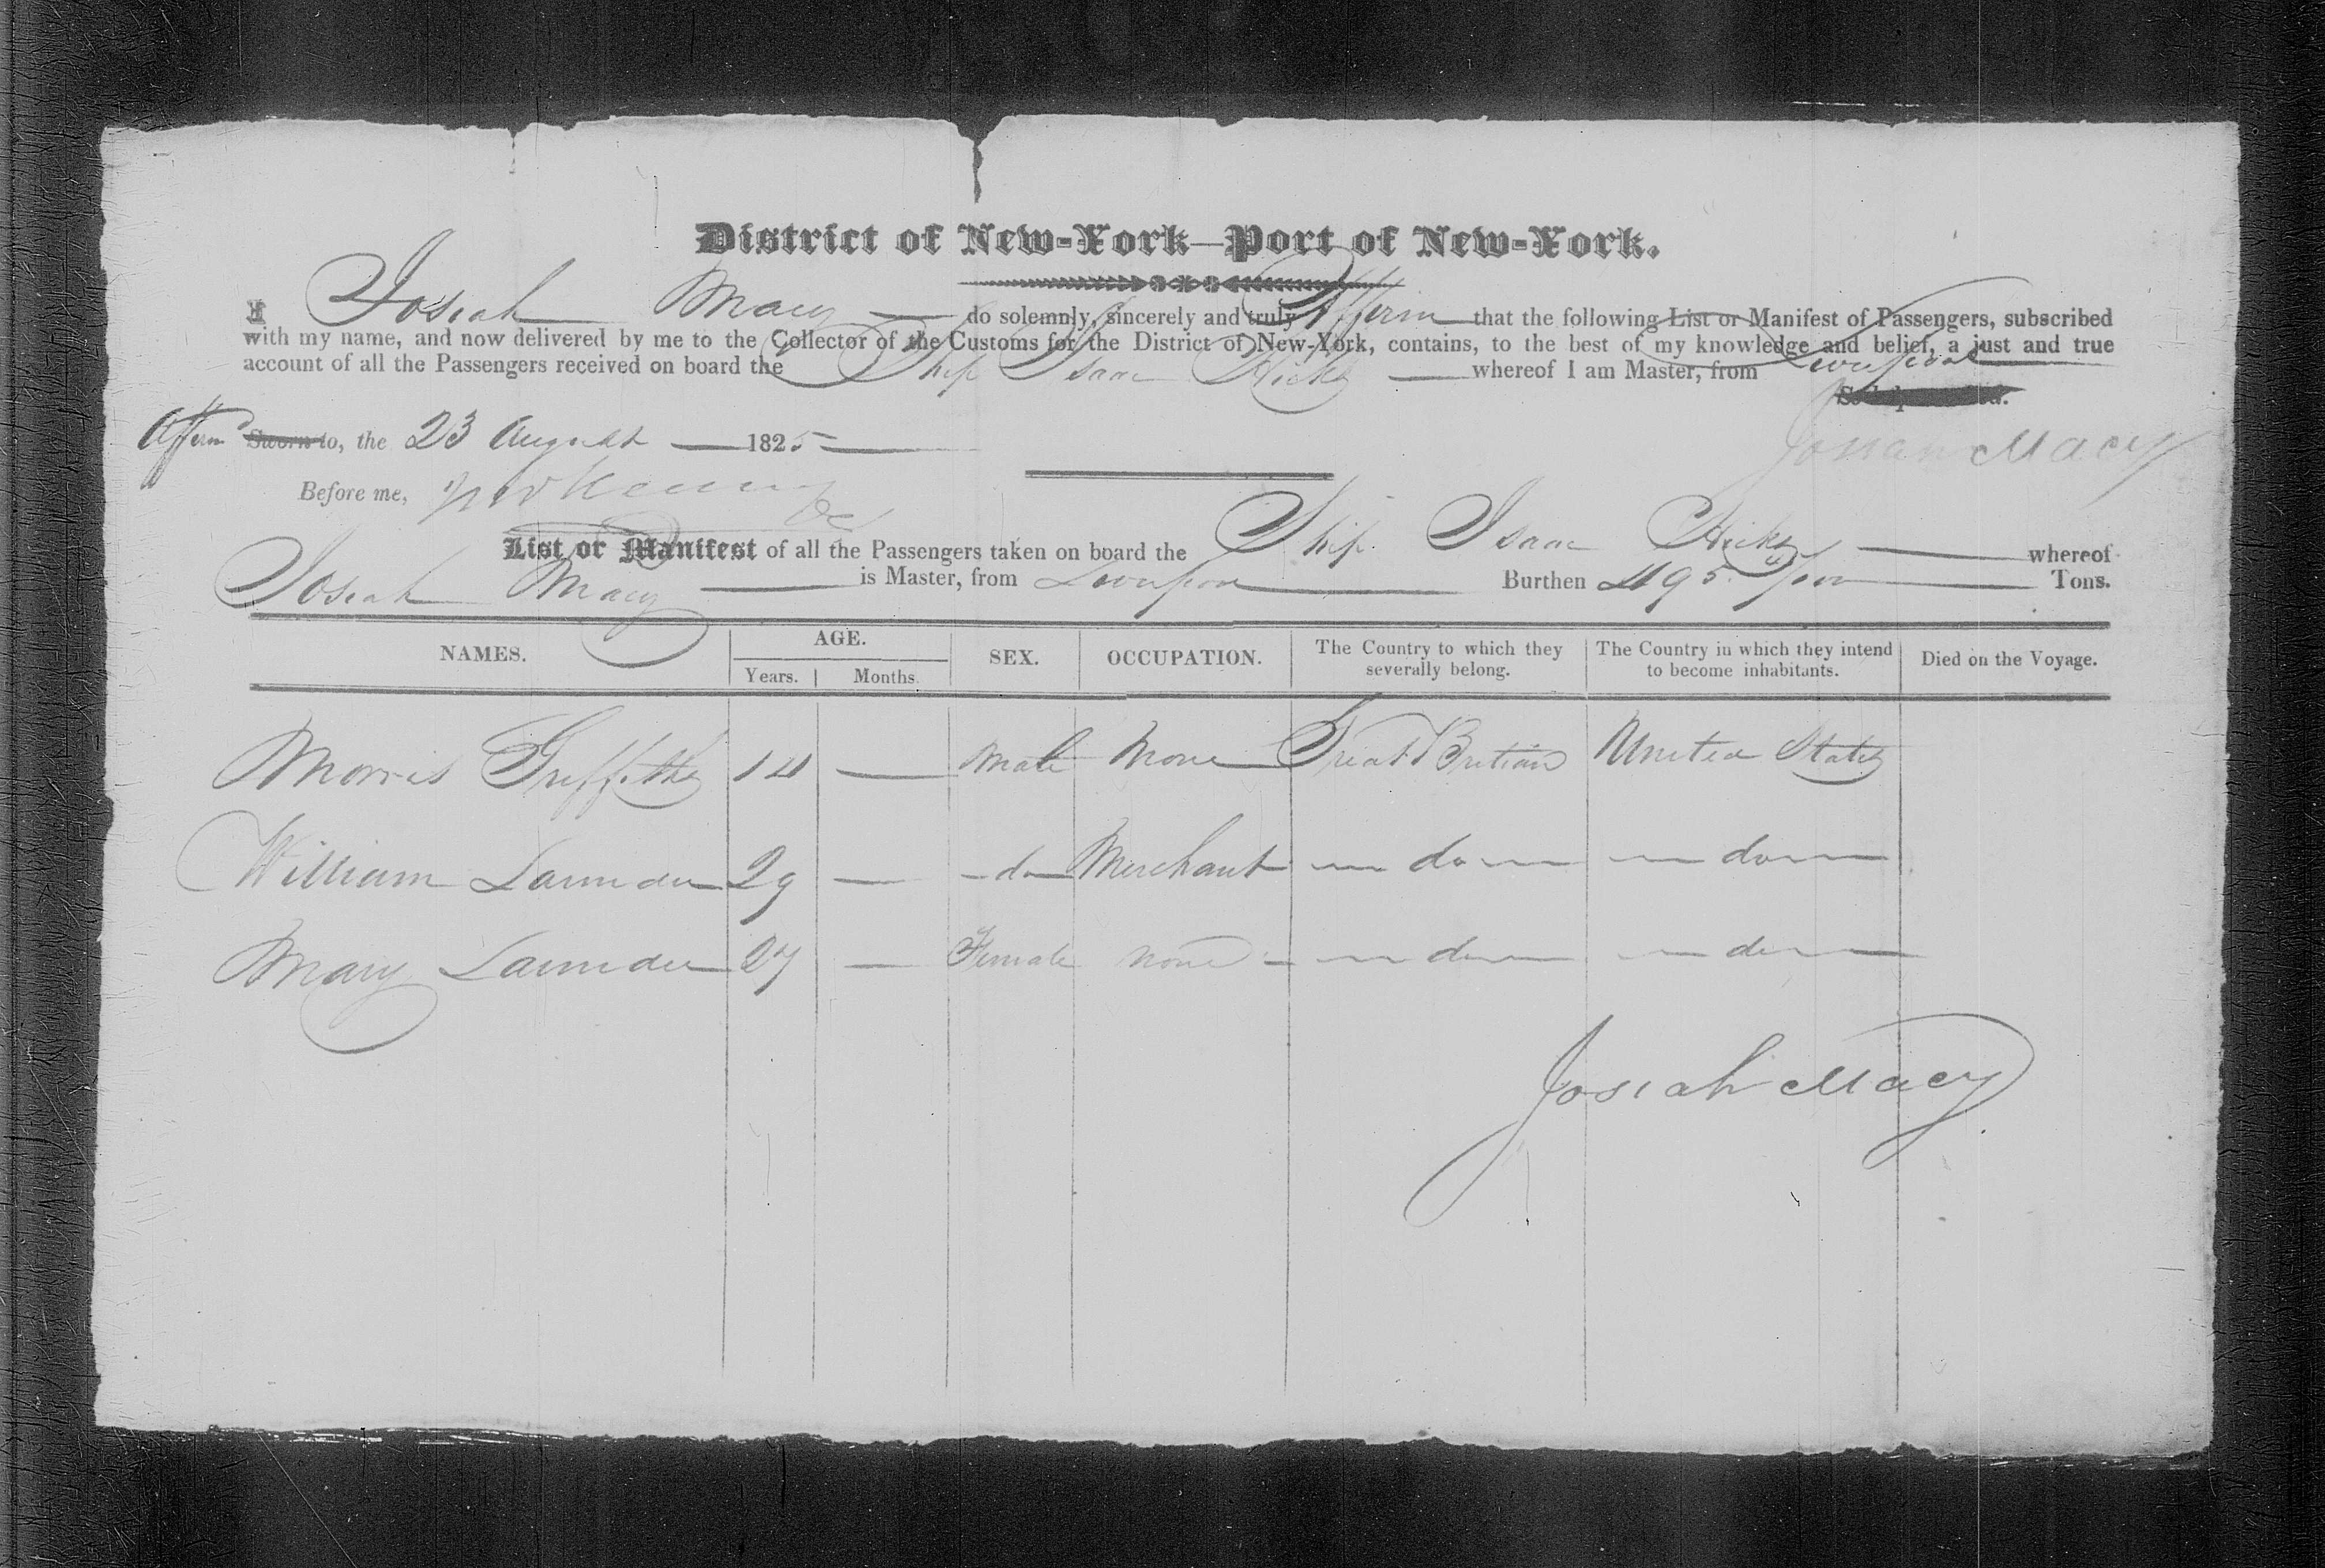 District of New-York—Port of New-York.
I Josiah Macy do solemnly, sincerely and truly Affirm that the following List or Manifest of Passengers, subscribed
with my name, and now delivered by me to the Collector of the Customs for the District of New-York, contains, to the best of my knowledge and belief, a just and true
account of all the Passengers received on board the Ship Isaac Hicks whereof I am Master, from Liverpool
Affirmd Sworn to, the 23 August 1825
Josiah Macy
Before me,
List or Manifest of all the Passengers taken on board the Ship Isaac Hicks whereof
Josiah Macy is Master, from Liverpool Burthen 495 Tons.
NAMES. AGE. SEX. OCCUPATION. The Country to which they severally belong. The Country in which they intend to become inhabitants. Died on the Voyage.
Years. Months.
Morris Griffiths 14 — Male None Great Britian United States
William 29 — do Merchant do do
Mary 27 — Female none do do
Josiah Macy